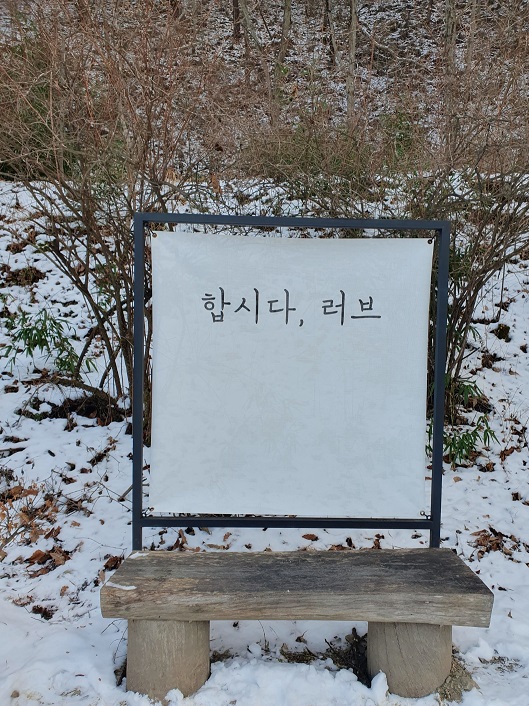 합시다, 러브